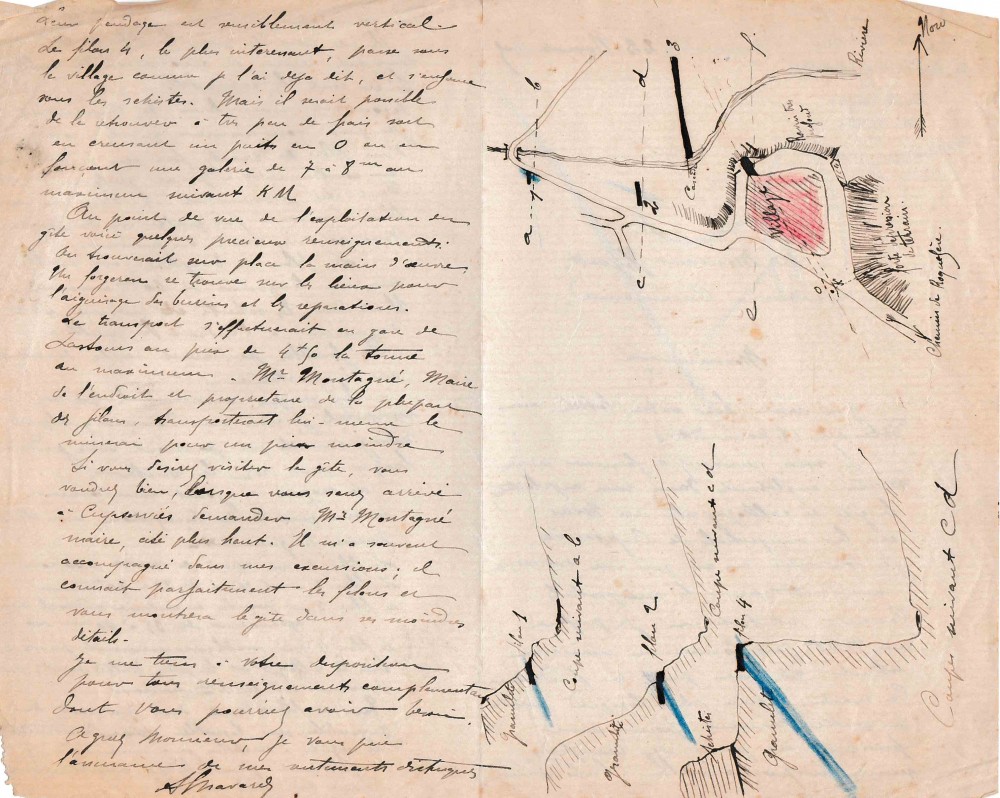 pendage est sensiblement vertical.
Le filon 4, le plus intéressant, passe sous
le village comme je l'ai déja dit, et s'enfonce
sous les schistes. Mais il serait possible
de le retrouver à très peu de frais soit
en creusant un puits en O ou en
fonçant une galerie de 7 à 8m au
maximum suivant KM
Au point de vue de l'exploitation du
gîte voici quelques precieux renseignements.
On trouverait sur place la main d'œuvre
Un forgeron se trouve sur les lieux pour
l'aiguisage des burins et les reparations.
Le transport s'effectuerait en gare de
Lastours au prix de 4f50 la tonne
au maximum. Mr Montagné, Maire
de l'endroit et propriétaire de la plupart
des filons, transporterait lui-meme le
minerai pour un prix moindre
Si vous desirez visiter le gîte, vous
voudrez bien, lorsque vous serez arrivé
à Cupserviès demander Mr Montagné
maire, cité plus haut. Il m'a souvent
accompagné dans mes excursions; il
connait parfaitement les filons et
vous montrera le gîte dans ses moindres
détails.
Je me tiens à votre disposition
pour tous renseignements complementaires
dont vous pourriez avoir besoin.
Agréez Monsieur, je vous prie
l'assurance de mes sentiments distingués
Nord
Rivière
a b
1
c d
2
3
Cascade
e f
4
Village
O
forte depression
de terrain
Chemin de Roquefère.
filon 1
Granulite
Coupe suivant a b
filon 2
granulite
Coupe suivant c d
filon 4
Schistes
Granulite
Coupes suivant C d